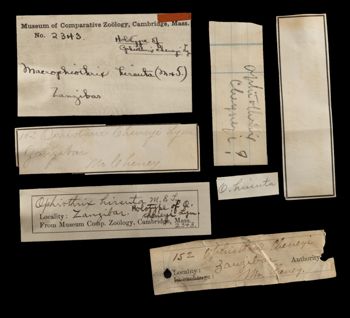 Museum of Comparative Zoölogy, Cambridge, Mass.
No. 2343.
Holotype of
Ophiothrix cheneyi Lym.
Macrophiothrix hirsuta (M&T.)
Zanzibar
152 Ophiothrix Cheneyi Lym
Zanzibar
Mr. Cheney
Ophiothrix hirsuta M. & T.
Locality: Zanzibar. Holotype of O.
cheneyi Lym.
From Museum Comp. Zoölogy, Cambridge, Mass.
2343.
Ophiothrix
Cheyneyi ?
O. hirsuta
152 Ophiothrix Cheneyi
Zanzibar Authority,
Locality:
In exchange: Mr. Cheney.